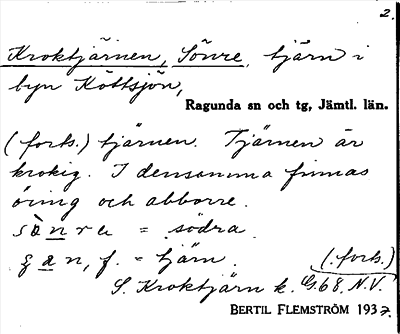 2.
Kroktjärnen, Sönre, tjärn i
byn Köttsjön,
Ragunda sn och tg, Jämtl. län.
(forts.) tjärnen. Tjärnen är
krokig. I densamma finnas
öring och abborre.
sònra = södra.
ʒan, f. = tjärn. (forts.)
S. Kroktjärn k. G.68, N.V.
BERTIL FLEMSTRÖM 1937.